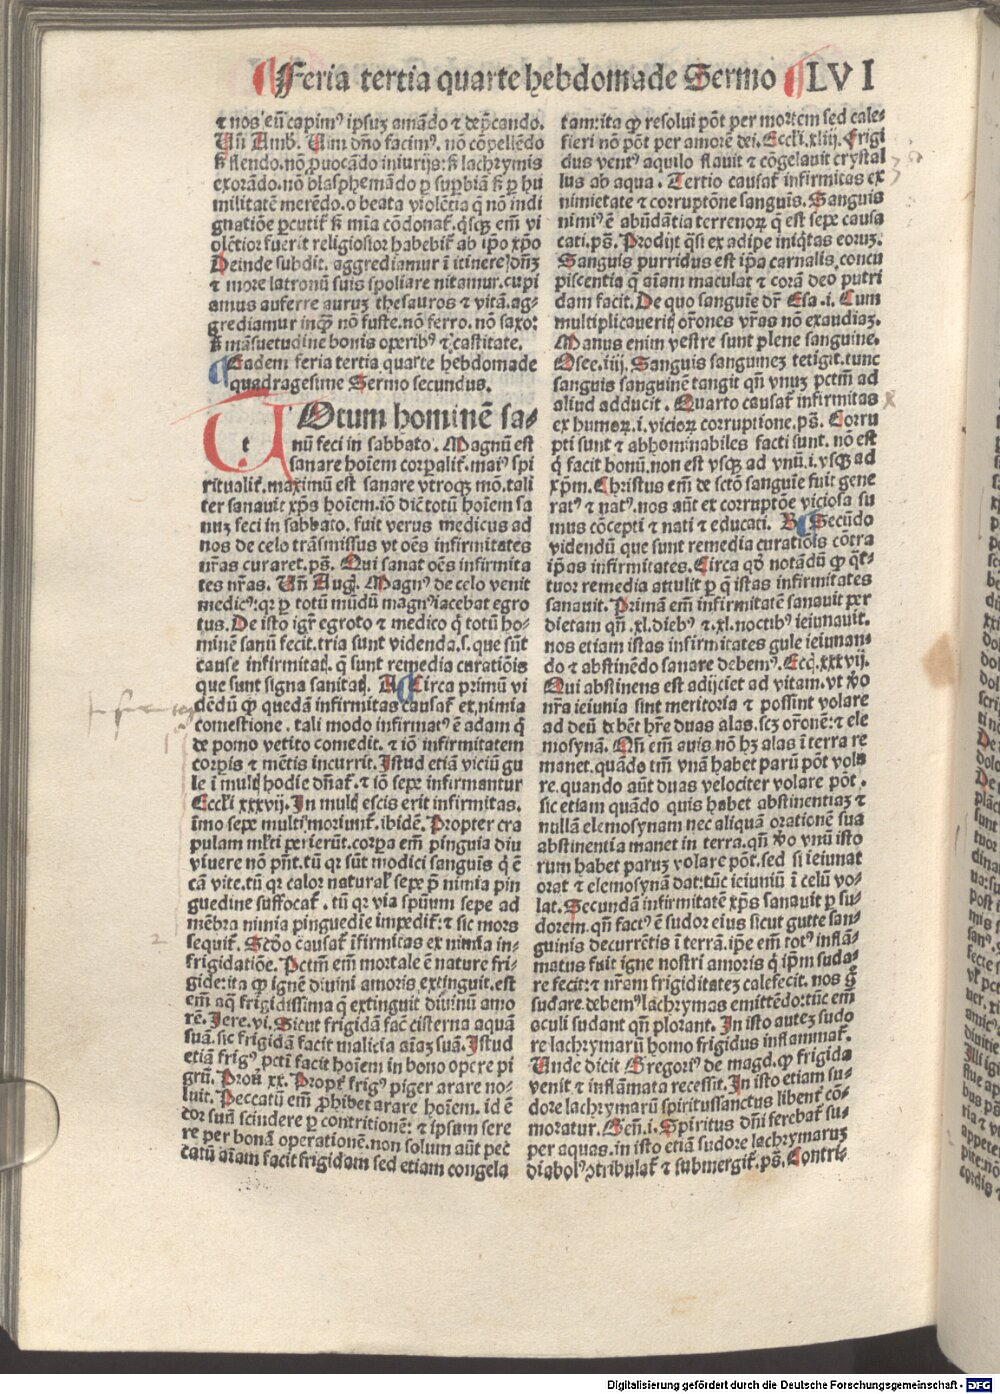 Feria tertia quarte hebdomade Sermo LVI
⁊ nos eū capimꝰ ipsuꝫ amādo ⁊ dep̄cando.
Uñ Amb. Uim dño facimꝰ. nō cōpellēdo
ſꝫ flendo. nō ꝓuocādo iniurijs: ſꝫ lachrymis
exorādo. nō blasphemādo ꝑ supbiā ſꝫ ꝑ hu
militatē merēdo. o beata violētia q̄ nō indi
gnatiōe ꝑcutit̃ ſꝫ mīa cōdonat̃. q̇sqꝫ em̄ vi
olētior fuerit religiosior habebit̃ ab ip̄o xp̄o
Deinde subdit. aggrediamur ī itinere dñꝫ
⁊ more latronū suis spoliare nitamur. cupi
amus auferre auruꝫ thesauros ⁊ vitā. ag-
grediamur inqꝫ nō fuste. nō ferro. nō saxo:
ſꝫ māsuetudine bonis operibꝰ ⁊ castitate.
Eadem feria tertia quarte hebdomade
quadragesime Sermo secundus.
TOtum hominē sa-
nū feci in sabbato. Magnū est
sanare hoīem corꝑalit̃. maiꝰ spi
ritualit̃. maximū est sanare vtroqꝫ mō. tali
ter sanauit xp̄s hoīem. iō dic̄ totū hoīem sa
nuꝫ feci in sabbato. fuit verus medicus ad
nos de celo trāsmissus vt oēs infirmitates
nr̄as curaret. ps̄. Qui sanat oēs infirmita
tes nr̄as. Uñ Augꝰ. Magnꝰ de celo venit
medicꝰ: qꝛ ꝑ totū mūdū magnꝰ iacebat egro
tus. De isto igr̄ egroto ⁊ medico q̇ totū ho-
minē sanū fecit. tria sunt videnda. s. que sūt
cause infirmitatꝭ. q̄ sunt remedia curatiōis
que sunt signa sanitatꝭ. A Circa primū vi
dēdū ꝙ quedā infirmitas causat̃ ex nimia
comestione. tali modo infirmatꝰ ē adam q̇
de pomo vetito comedit. ⁊ iō infirmitatem
corꝑis ⁊ mētis incurrit. Istud etiā viciū gu
le ī multꝭ hodie dñat̃. ⁊ iō sepe infirmantur
Eccl̄i xxxvij. In multꝭ escis erit infirmitas.
īmo sepe multi moriunt̃. ibidē. Propter cra
pulam ml̄ti perierūt. corpa em̄ pinguia diu
viuere nō pn̄t. tū qꝛ sūt modici sanguīs q̇ ē
cā vite. tū qꝛ calor natural̃ sepe p̄ nimia pin
guedine suffocat̃. tū qꝛ via spūum sepe ad
mēbra nimia pinguedīe impedit̃: ⁊ sic mors
sequit̃. Sc̄do causat̃ īfirmitas ex nimia in-
frigidatiōe. Pctm̄ em̄ mortale ē nature fri-
gide: ita ꝙ ignē diuini amoris extinguit. est
em̄ aq̄ frigidissima q̄ extinguit diuinū amo
rē. Jere. vi. Sicut frigidā fac̄ cisterna aquā
suā. sic frigidā facit malicia aīaꝫ suā. Istud
etiā frigꝰ pctī facit hoīem in bono opere pi
grū. Prou xx. Propt̃ frigꝰ piger arare no-
luit. Peccatū em̄ ꝓhibet arare hoīem. id ē
cor suū scindere ꝑ contritionē: ⁊ ipsum sere
re per bonā operationē. non solum aūt pec
catū aīam facit frigidam sed etiam congela
tam: ita ꝙ resolui pōt per mortem sed cale-
fieri nō pōt per amorē dei. Eccl̄i. xliij. Frigi
dus ventꝰ aquilo flauit ⁊ cōgelauit crystal
lus ab aqua. Tertio causat̃ infirmitas ex
nimietate ⁊ corruptōne sanguīs. Sanguis
nimiꝰ ē abūdātia terrenoꝝ q̄ est sepe causa
cati. ps̄. Prodijt q̄si ex adipe iniq̇tas eoruꝫ.
Sanguis putridus est ip̄a carnalis concu
piscentia q̄ aīam maculat ⁊ corā deo putri
dam facit. De quo sanguīe dr̄ Esa. i. Cum
multiplicaueritꝭ or̄ones vr̄as nō exaudiaꝫ.
Manus enim vestre sunt plene sanguine.
Osee. iiij. Sanguis sanguineꝫ tetigit. tunc
sanguis sanguinē tangit qn̄ vnuꝫ pctm̄ ad
aliud adducit. Quarto causat̃ infirmitas
ex humoꝝ. i. vicioꝝ corruptione. ps̄. Corru
pti sunt ⁊ abhominabiles facti sunt. nō est
q̇ facit bonū. non est vsqꝫ ad vnū. i. vsqꝫ ad
xp̄m. Christus em̄ de sctō sanguīe fuit gene
ratꝰ ⁊ natꝰ. nos aūt ex corruptōe viciosa su
mus cōcepti ⁊ nati ⁊ educati. B Secūdo
videndū que sunt remedia curatiōis cōtra
ip̄as infirmitates. Circa qd̄ notādū ꝙ q̄t-
tuor remedia attulit ꝑ q̄ istas infirmitates
sanauit. Primā em̄ infirmitatē sanauit per
dietam qn̄. xl. diebꝰ ⁊ .xl. noctibꝰ ieiunauit.
nos etiam istas infirmitates gule ieiunan-
do ⁊ abstinēdo sanare debemꝰ. Eccl̄. xxxvij.
Qui abstinens est adijciet ad vitam. vt v̄o
nr̄a ieiunia sint meritoria ⁊ possint volare
ad deū dēbēt hr̄e duas alas. scꝫ or̄onē: ⁊ ele
mosynā. Qn̄ em̄ auis nō hꝫ alas ī terra re
manet. quādo tm̄ vnā habet parū pōt vola
re. quando aūt duas velociter volare pōt.
sic etiam quādo quis habet abstinentiaꝫ ⁊
nullā elemosynam nec aliquā orationē sua
abstinentia manet in terra. qn̄ v̄o vnū isto
rum habet paruꝫ volare pōt. sed si ieiunat
orat ⁊ elemosynā dat: tūc ieiuniū ī celū vo-
lat. Secundā infirmitatē xp̄s sanauit ꝑ su-
dorem. qn̄ factꝰ ē sudor eius sicut gutte san-
guinis decurrētis ī terrā. ip̄e em̄ totꝰ inflā-
matus fuit igne nostri amoris q̇ ip̄m suda-
re fecit: ⁊ nr̄am frigiditateꝫ calefecit. nos g̊
sudare debemꝰ lachrymas emittēdo: tūc em̄
oculi sudant qn̄ plorant. In isto auteꝫ sudo
re lachrymarū homo frigidus inflammat̃.
Unde dicit Gregoriꝰ de magd. ꝙ frigida
venit ⁊ inflāmata recessit. In isto etiam su-
dore lachrymarū spiritussanctus libent̃ cō-
moratur. Geñ. i. Spiritus dn̄i ferebat̃ su-
per aquas. in isto etiā sudore lachrymaruꝫ
diabolꝰ ꝯtribulat̃ ⁊ submergit̃. ps̄. Contri-
Digitalisierung gefördert durch die Deutsche Forschungsgemeinschaft - DFG